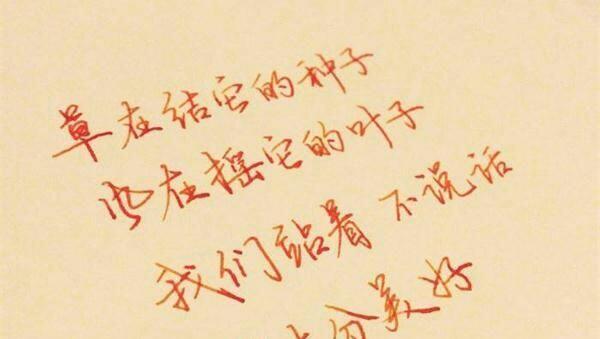 草在结它的种子
风在摇它的叶子
我们站着 不说话
十分美好